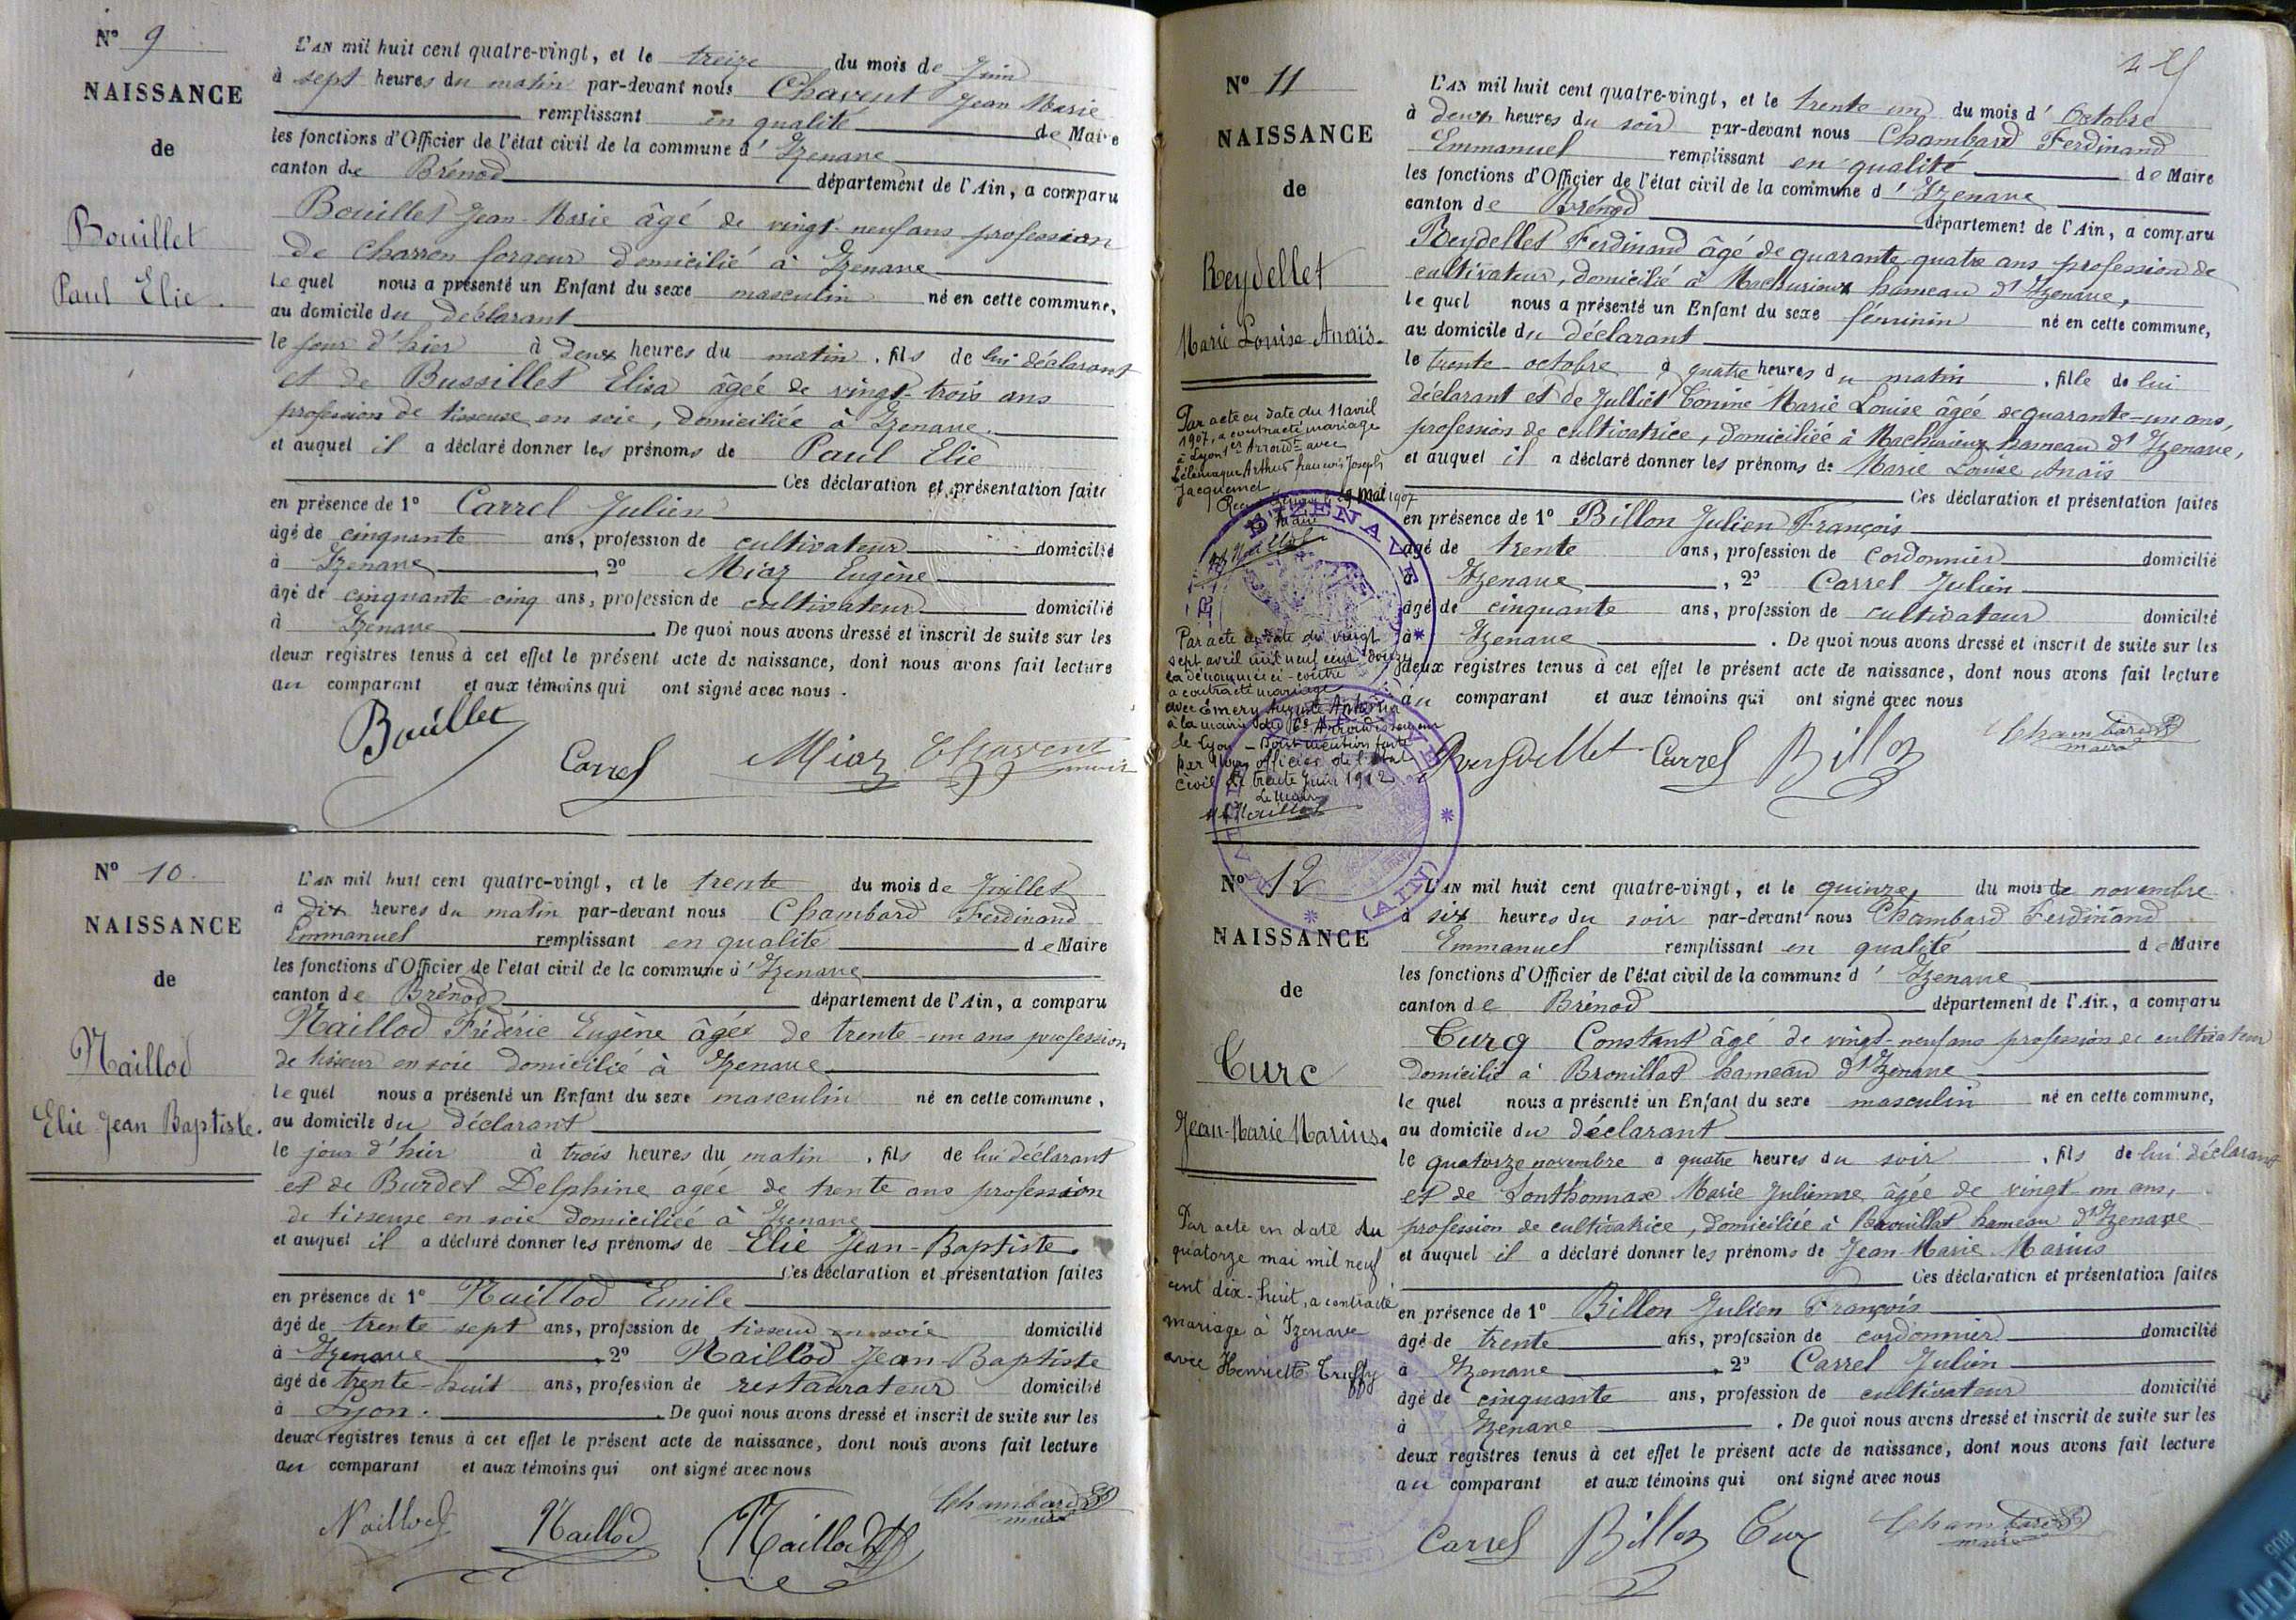 Nº 9
NAISSANCE
de
Bouillet
Paul Elie.
L'AN mil huit cent quatre-vingt, et le treize du mois de Juin
à sept heures du matin par-devant nous Chavent Jean Marie
remplissant en qualité de Maire
les fonctions d'Officier de l'état civil de la commune d' Izenave
canton de Brénod département de l'Ain, a comparu
Bouillet Jean-Marie âgé de vingt-neuf ans profession
de charron forgeur domicilié à Izenave
le quel nous a présenté un Enfant du sexe masculin né en cette commune,
au domicile du déclarant
le jour d'hier à deux heures du matin, fils de lui déclarant
et de Bussillet Elisa âgée de vingt-trois ans
profession de tisseuse en soie, domiciliée à Izenave.
et auquel il a déclaré donner les prénoms de Paul Elie
Ces déclaration et présentation faites
en présence de 1º Carrel Julien
âgé de cinquante ans, profession de cultivateur domicilié
à Izenave, 2º Miaz Eugène
âgé de cinquante-cinq ans, profession de cultivateur domicilié
à Izenave. De quoi nous avons dressé et inscrit de suite sur les
deux registres tenus à cet effet le présent acte de naissance, dont nous avons fait lecture
au comparant et aux témoins qui ont signé avec nous.
Bouillet
Carrel Miaz Chavent
maire
Nº 10.
NAISSANCE
de
Naillod
Elie Jean Baptiste.
L'AN mil huit cent quatre-vingt, et le trente du mois de Juillet
à dix heures du matin par-devant nous Chambard Ferdinand
Emmanuel remplissant en qualité de Maire
les fonctions d'Officier de l'état civil de la commune d' Izenave
canton de Brénod département de l'Ain, a comparu
Naillod Frédéric Eugène âgé de trente-un ans profession
de tisseur en soie domicilié à Izenave
le quel nous a présenté un Enfant du sexe masculin né en cette commune,
au domicile du déclarant
le jour d'hier à trois heures du matin, fils de lui déclarant
et de Burdet Delphine agée de trente ans profession
de tisseuse en soie domiciliée à Izenave
et auquel il a déclaré donner les prénoms de Elie Jean-Baptiste.
Ces déclaration et présentation faites
en présence de 1º Naillod Emile
âgé de trente sept ans, profession de tisseur en soie domicilié
à Izenave, 2º Naillod Jean-Baptiste
âgé de trente-huit ans, profession de restaurateur domicilié
à Lyon. De quoi nous avons dressé et inscrit de suite sur les
deux registres tenus à cet effet le présent acte de naissance, dont nous avons fait lecture
au comparant et aux témoins qui ont signé avec nous
Naillod Naillod Naillod Chambard
maire
Nº 11
NAISSANCE
de
Reydellet
Marie Louise Anaïs.
Par acte en date du 11 avril
1907, a contracté mariage
à Lyon 1er Arrondt avec
Télémaque Arthur François Joseph
Jacquemet
mai 1907
Le Maire
D'IZENAVE
Par acte en date du vingt
sept avril mil neuf cent douze
la dénommée ci-contre
a contracté mariage
avec Émery Auguste
à la mairie du 6e Arrondissement
de Lyon – Dont mention faite
par Nous officier de l'état
civil le trente Juin 1912
Le Maire
(AIN)
L'AN mil huit cent quatre-vingt, et le trente-un du mois d' Octobre
à deux heures du soir par-devant nous Chambard Ferdinand
Emmanuel remplissant en qualité de Maire
les fonctions d'Officier de l'état civil de la commune d' Izenave
canton de Brénod département de l'Ain, a comparu
Reydellet Ferdinand âgé de quarante-quatre ans profession de
cultivateur, domicilié à Machurieux hameau d'Izenave,
le quel nous a présenté un Enfant du sexe féminin né en cette commune,
au domicile du déclarant
le trente octobre à quatre heures du matin, fille de lui
déclarant et de Julliet Marie Louise âgée de quarante-un ans,
profession de cultivatrice, domiciliée à Machurieux hameau d'Izenave,
et auquel il a déclaré donner les prénoms de Marie Louise Anaïs
Ces déclaration et présentation faites
en présence de 1º Billon Julien François
âgé de trente ans, profession de cordonnier domicilié
à Izenave, 2º Carrel Julien
âgé de cinquante ans, profession de cultivateur domicilié
à Izenave. De quoi nous avons dressé et inscrit de suite sur les
deux registres tenus à cet effet le présent acte de naissance, dont nous avons fait lecture
au comparant et aux témoins qui ont signé avec nous
Reydellet Carrel Billon Chambard
maire
Nº 12
NAISSANCE
de
Turc
Jean-Marie Marius.
Par acte en date du
quatorze mai mil neuf
cent dix-huit, a contracté
mariage à Izenave
avec Henriette Truffy
L'AN mil huit cent quatre-vingt, et le quinze, du mois de novembre
à six heures du soir par-devant nous Chambard Ferdinand
Emmanuel remplissant en qualité de Maire
les fonctions d'Officier de l'état civil de la commune d' Izenave
canton de Brénod département de l'Ain, a comparu
Turq Constant âgé de vingt-neuf ans profession de cultivateur
domicilié à Brouillat hameau d'Izenave
le quel nous a présenté un Enfant du sexe masculin né en cette commune,
au domicile du déclarant
le quatorze novembre à quatre heures du soir, fils de lui déclarant
et de Lonthonnax Marie Julienne âgée de vingt-un ans,
profession de cultivatrice, domiciliée à Brouillat hameau d'Izenave
et auquel il a déclaré donner les prénoms de Jean-Marie Marius
Ces déclaration et présentation faites
en présence de 1º Billon Julien François
âgé de trente ans, profession de cordonnier domicilié
à Izenave. 2º Carrel Julien
âgé de cinquante ans, profession de cultivateur domicilié
à Izenave. De quoi nous avons dressé et inscrit de suite sur les
deux registres tenus à cet effet le présent acte de naissance, dont nous avons fait lecture
au comparant et aux témoins qui ont signé avec nous
Carrel Billon Turc Chambard
maire